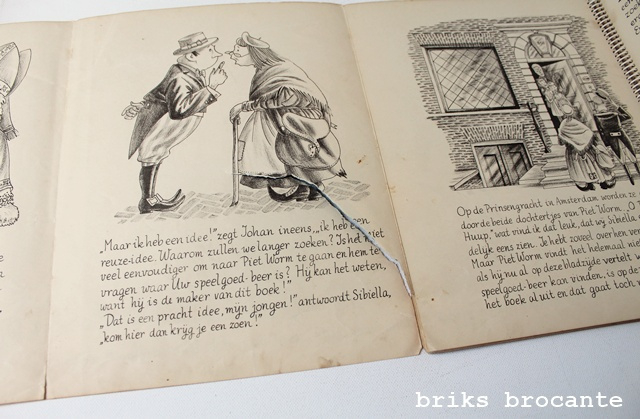 „Maar ik heb een idee!" zegt Johan ineens, „ik heb een
reuze-idee. Waarom zullen we langer zoeken? Is het niet
veel eenvoudiger om naar Piet Worm te gaan en hem te
vragen waar Uw speelgoed-beer is? Hij kan het weten,
want hij is de maker van dit boek!"
„Dat is een pracht idee, mijn jongen!" antwoordt Sibiella,
„kom hier dan krijg je een zoen!"
Op de Prinsengracht in Amsterdam worden ze
door de beide dochtertjes van Piet Worm. „O
Huup," wat vind ik dat leuk, dat wij Sibiella,
delijk eens zien. Je hebt zoveel over hen ver
Maar Piet Worm vindt het helemaal
als hij nu al op deze bladzijde vertelt
speelgoed-beer kan vinden, is op de
het boek al uit en dat gaat toch
briks brocante